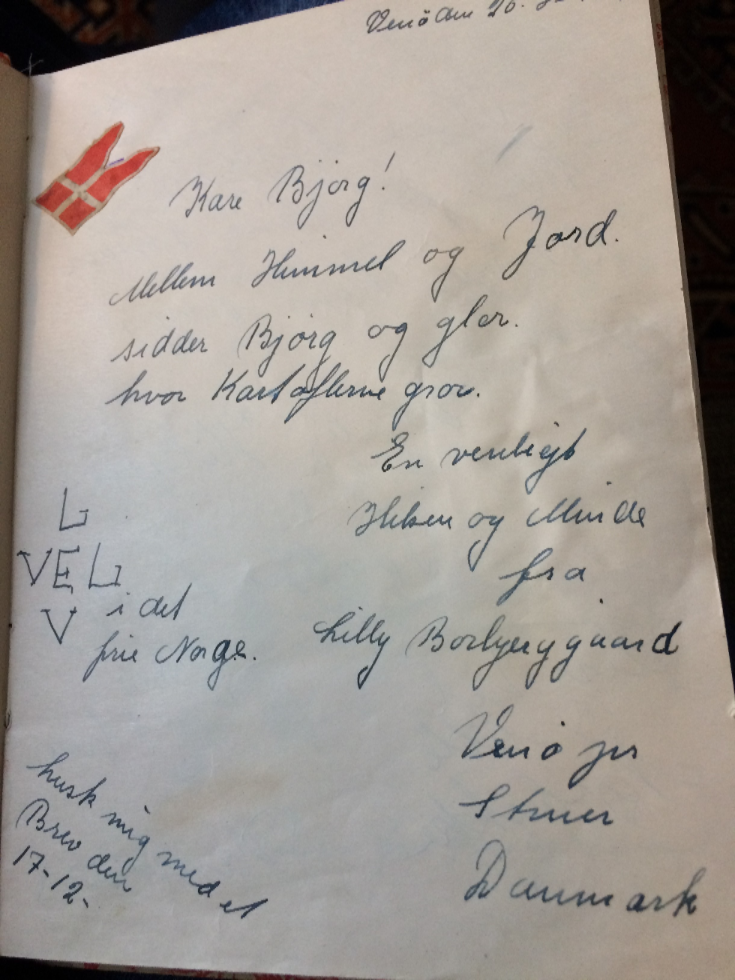 Venø den 26.
Kære Bjørg!
Mellem Himmel og Jord.
sidder Bjørg og glor.
hvor Kartoflerne gror.
En venligt
Hilsen og Minde
fra
Lilly Borbjerggaard
Venø pr
Struer
Danmark
L
VEL
V
i det
frie Norge.
husk mig med et
Brev den
17-12-